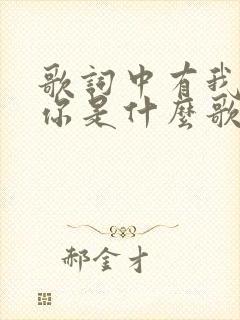 歌詞中有我
你是什麼歌
郝金才